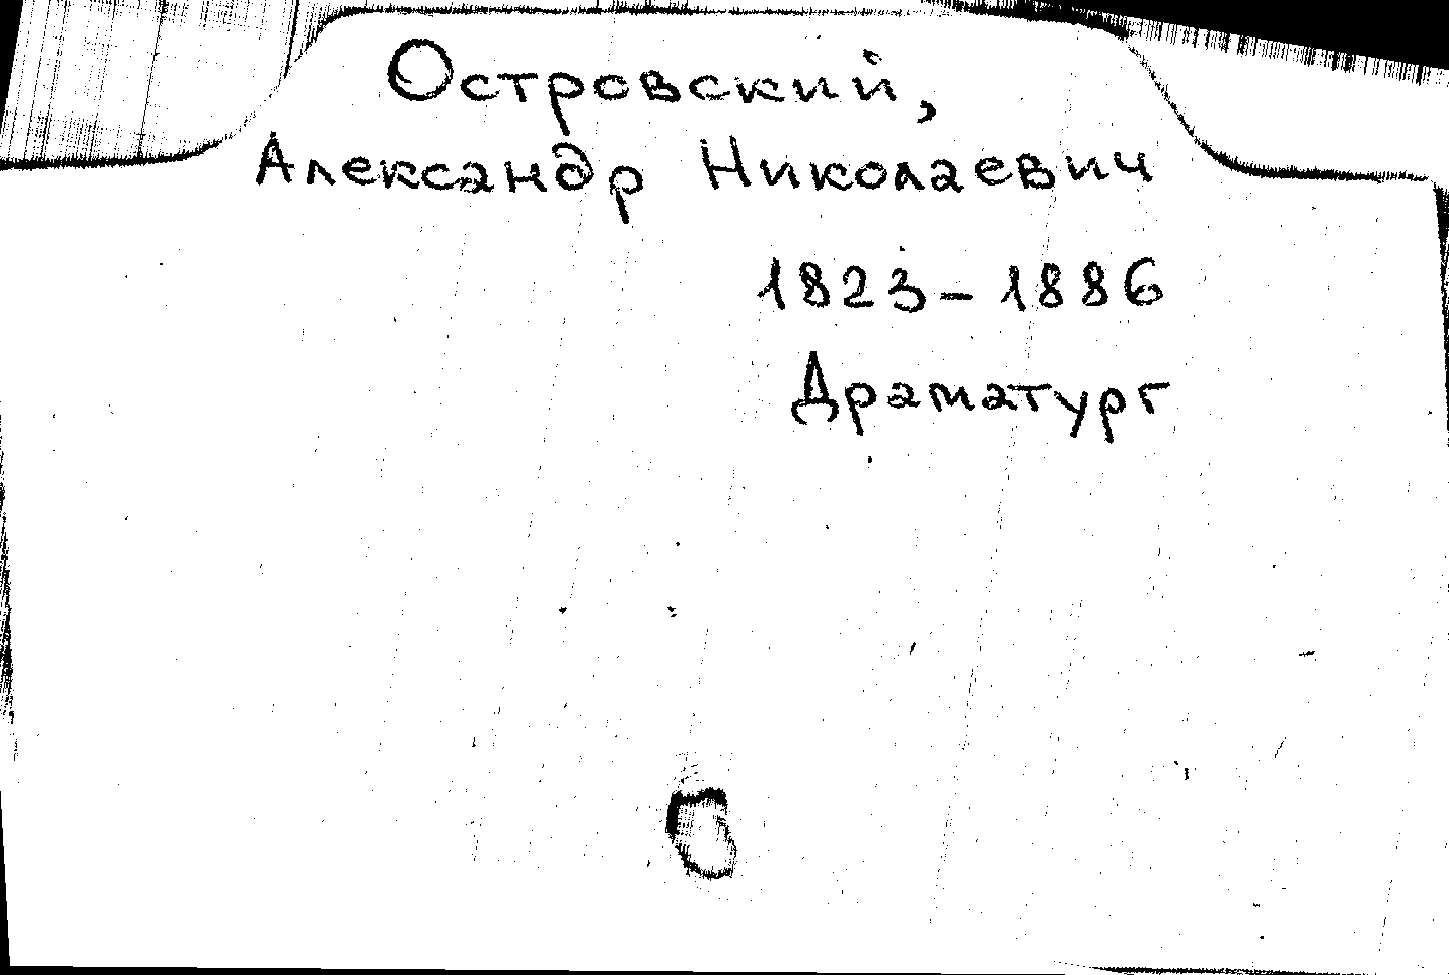 Островский,
Александр Николаевич
1823-1886
Драматург